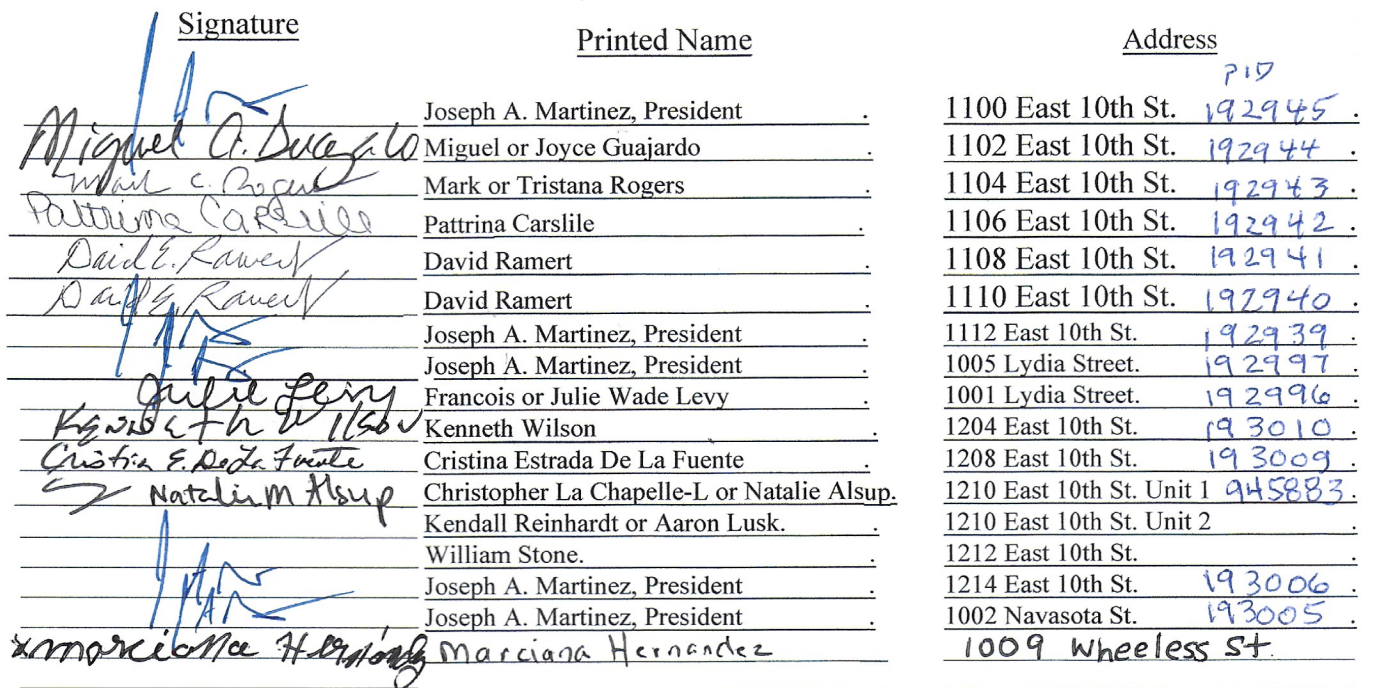 Signature Printed Name Address
PID
Joseph A. Martinez, President . 1100 East 10th St. 192945 .
Miguel Miguel or Joyce Guajardo . 1102 East 10th St. 192944 .
Mark C. Rogers Mark or Tristana Rogers . 1104 East 10th St. 192943 .
Pattrina Carslile Pattrina Carslile . 1106 East 10th St. 192942 .
David E. Ramert David Ramert . 1108 East 10th St. 192941 .
David E. Ramert David Ramert . 1110 East 10th St. 192940 .
Joseph A. Martinez, President . 1112 East 10th St. 192939 .
Joseph A. Martinez, President . 1005 Lydia Street. 192997 .
Julie Levy Francois or Julie Wade Levy . 1001 Lydia Street. 192996 .
Kenneth Wilson Kenneth Wilson . 1204 East 10th St. 193010 .
Cristina E. De La Fuente Cristina Estrada De La Fuente . 1208 East 10th St. 193009 .
Natalie M Alsup Christopher La Chapelle-L or Natalie Alsup. 1210 East 10th St. Unit 1 945883 .
Kendall Reinhardt or Aaron Lusk. . 1210 East 10th St. Unit 2 .
William Stone. . 1212 East 10th St. .
Joseph A. Martinez, President . 1214 East 10th St. 193006 .
Joseph A. Martinez, President . 1002 Navasota St. 193005 .
x Marciana Hernández Marciana Hernandez 1009 Wheeless St.